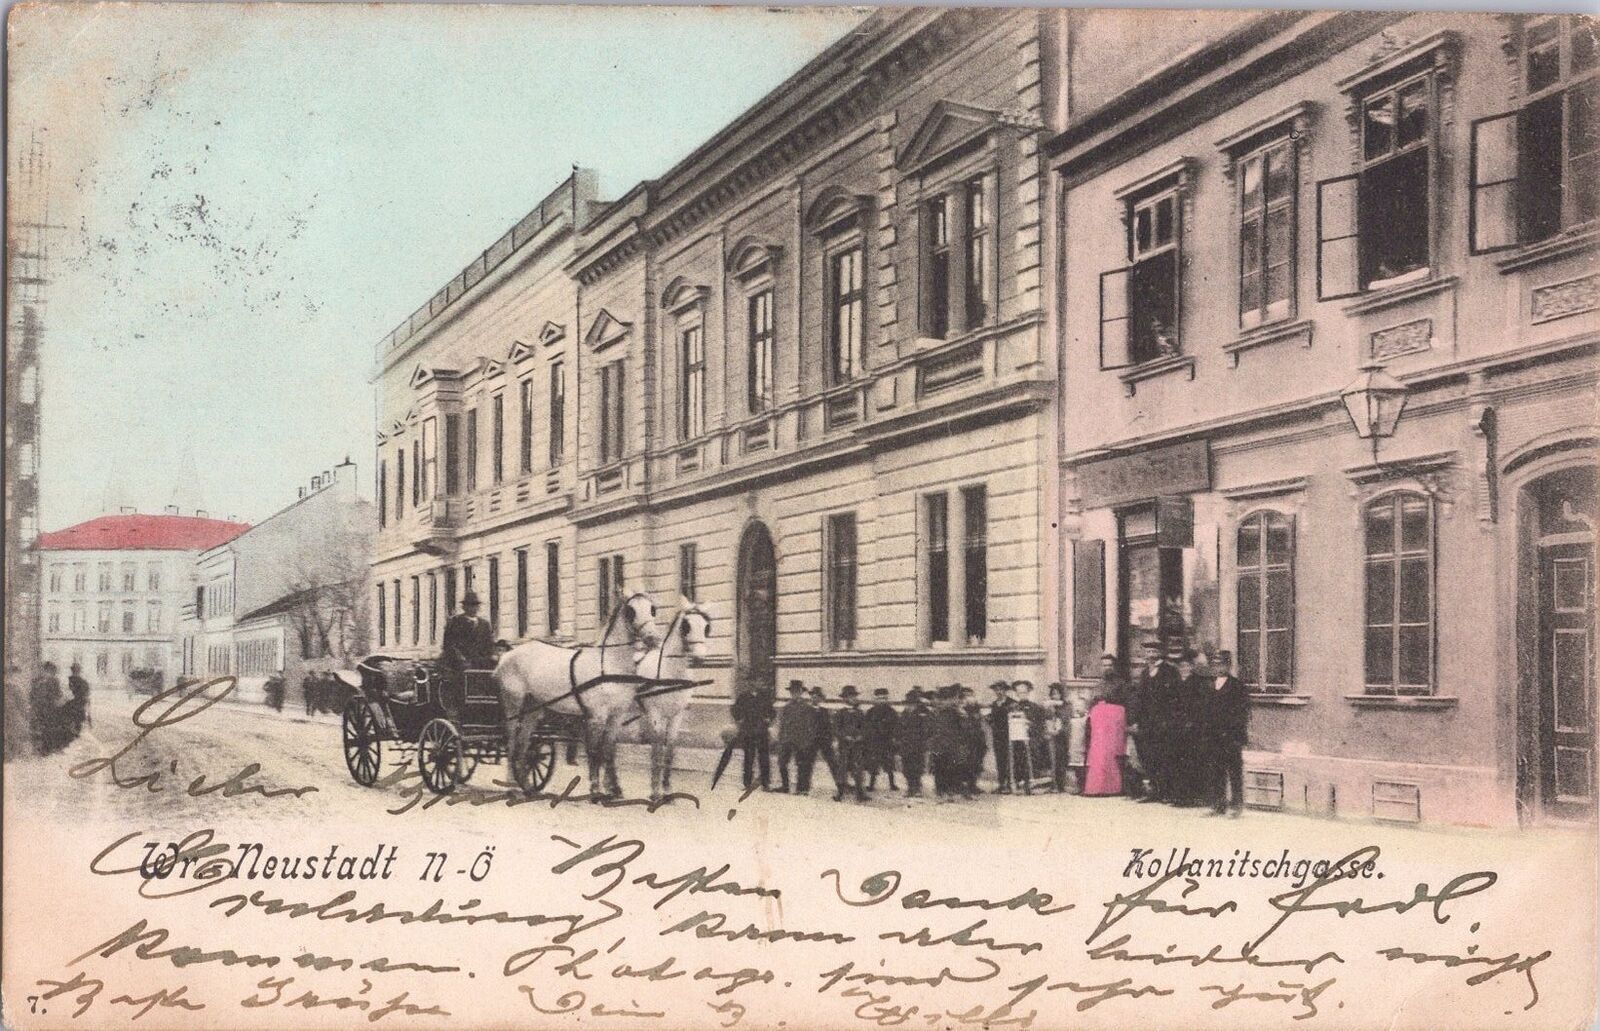 Lieber Bruder!
Wr.-Neustadt N-Ö
Kollanitschgasse.
Besten Dank für frdl.
Einladung, kann aber leider nicht
kommen. Photogr. sind sehr gut.
7.
Beste Grüße Dein B. Willi